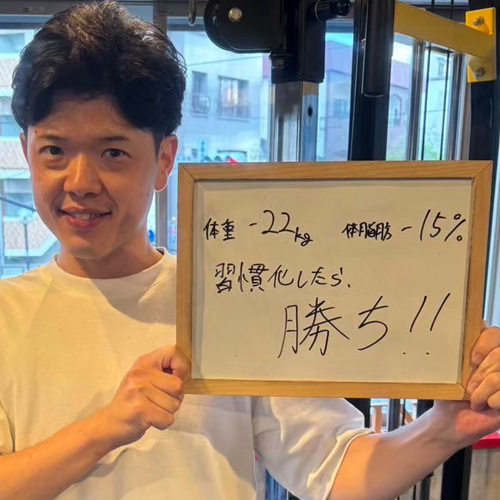 体重 -22kg 体脂肪 -15%
習慣化したら、
勝ち!!